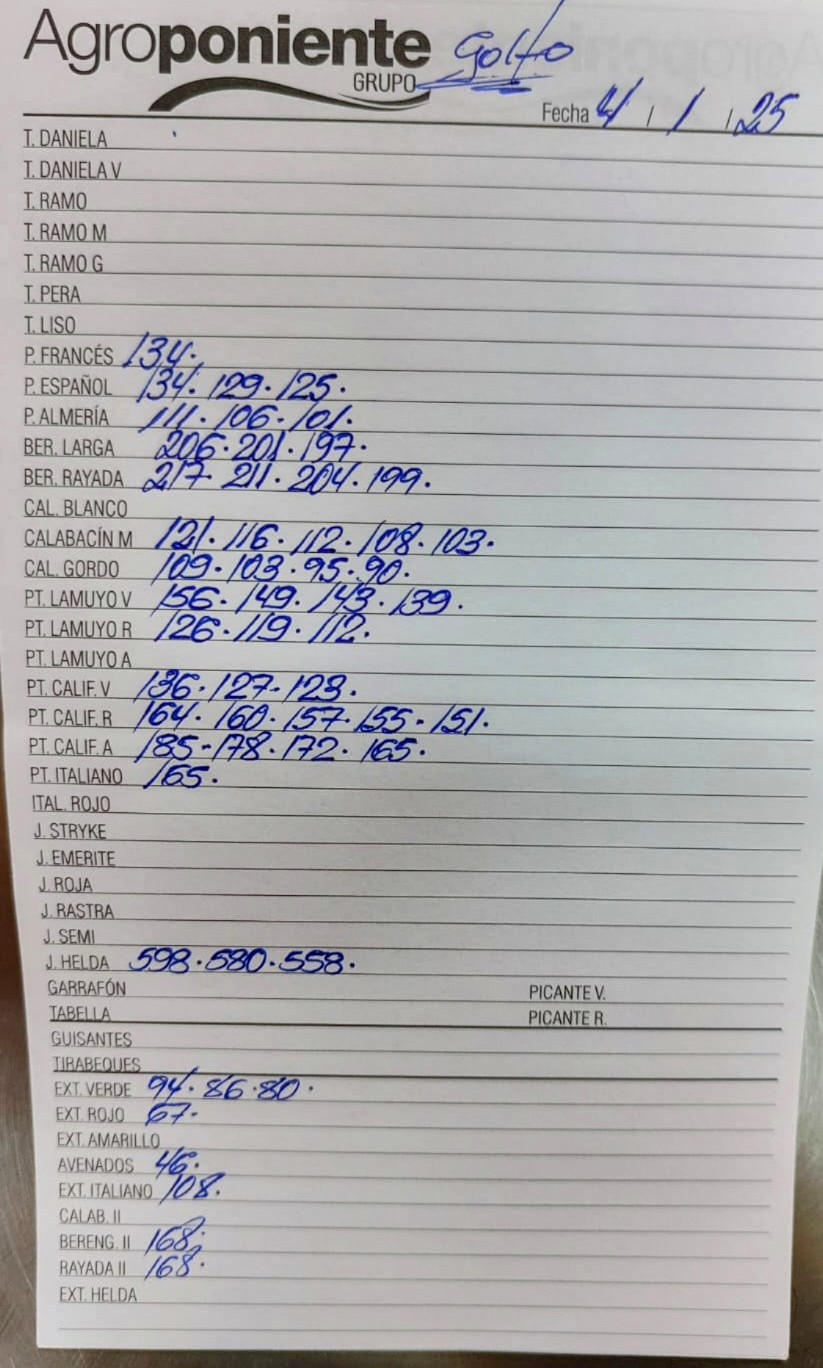 Agroponiente Golfo
GRUPO
Fecha 4 / 1 / 25
T. DANIELA
T. DANIELA V
T. RAMO
T. RAMO M
T. RAMO G
T. PERA
T. LISO
P. FRANCÉS 134.
P. ESPAÑOL 134. 129. 125.
P. ALMERÍA 111. 106. 101.
BER. LARGA 206. 201. 197.
BER. RAYADA 217. 211. 204. 199.
CAL. BLANCO
CALABACÍN M 121. 116. 112. 108. 103.
CAL. GORDO 109. 103. 95. 90.
PT. LAMUYO V 156. 149. 143. 139.
PT. LAMUYO R 126. 119. 112.
PT. LAMUYO A
PT. CALIF. V 136. 127. 123.
PT. CALIF. R 164. 160. 157. 155. 151.
PT. CALIF. A 185. 178. 172. 165.
PT. ITALIANO 165.
ITAL. ROJO
J. STRYKE
J. EMERITE
J. ROJA
J. RASTRA
J. SEMI
J. HELDA 598. 580. 558.
GARRAFÓN PICANTE V.
TABELLA PICANTE R.
GUISANTES
TIRABEQUES
EXT. VERDE 94. 86. 80.
EXT. ROJO 67.
EXT. AMARILLO
AVENADOS 46.
EXT. ITALIANO 108.
CALAB. II
BERENG. II 168.
RAYADA II 168.
EXT. HELDA